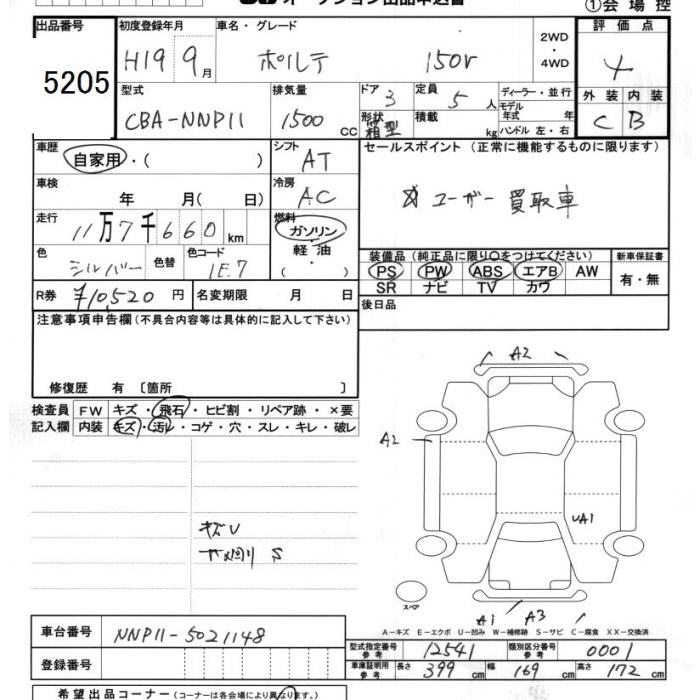 オークション出品申込書
①会場控
出品番号 5205
初度登録年月 H19 9月
車名・グレード ポルテ 150r
2WD・4WD
評価点 4
型式 CBA-NNP11
排気量 1500 CC
ドア 3
形状 箱型
定員 5 人
積載 kg
ディーラー・並行
モデル年式 年
ハンドル 左・右
外装 C 内装 B
車歴 自家用・( )
シフト AT
車検 年 月( 日)
冷房 AC
走行 11万7千660 km
燃料 ガソリン・軽油・( )
色 シルバー 色替
色コード 1E7
R券 ¥10,520 円
名変期限 月 日
セールスポイント(正常に機能するものに限ります)
ユーザー買取車
装備品(純正品に限り○をつけてください)
PS PW ABS エアB AW
SR ナビ TV カワ
新車保証書 有・無
後日品
注意事項申告欄(不具合内容等は具体的に記入して下さい)
修復歴 有 〔箇所 〕
検査員記入欄
FW キズ・飛石・ヒビ割・リペア跡・×要
内装 キズ・汚レ・コゲ・穴・スレ・キレ・破レ
キズU
下廻り S
A2
A2
UA1
スペア
A1 A3
A―キズ E―エクボ U―凹み W―補修跡 S―サビ C―腐食 XX―交換済
車台番号 NNP11-5021148
登録番号
型式指定番号 参考 12541
類別区分番号 参考 0001
車庫証明用 参考 長さ 399 cm 幅 169 cm 高さ 172 cm
希望出品コーナー(コーナーは各会場により異なります。)